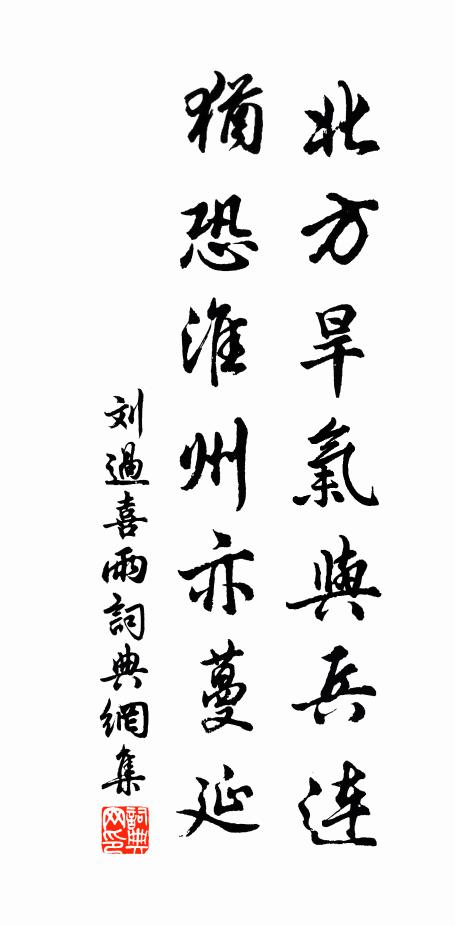 北方旱氣與兵連
猶恐淮州亦蔓延
刘過喜雨詞典網集
詞典网印